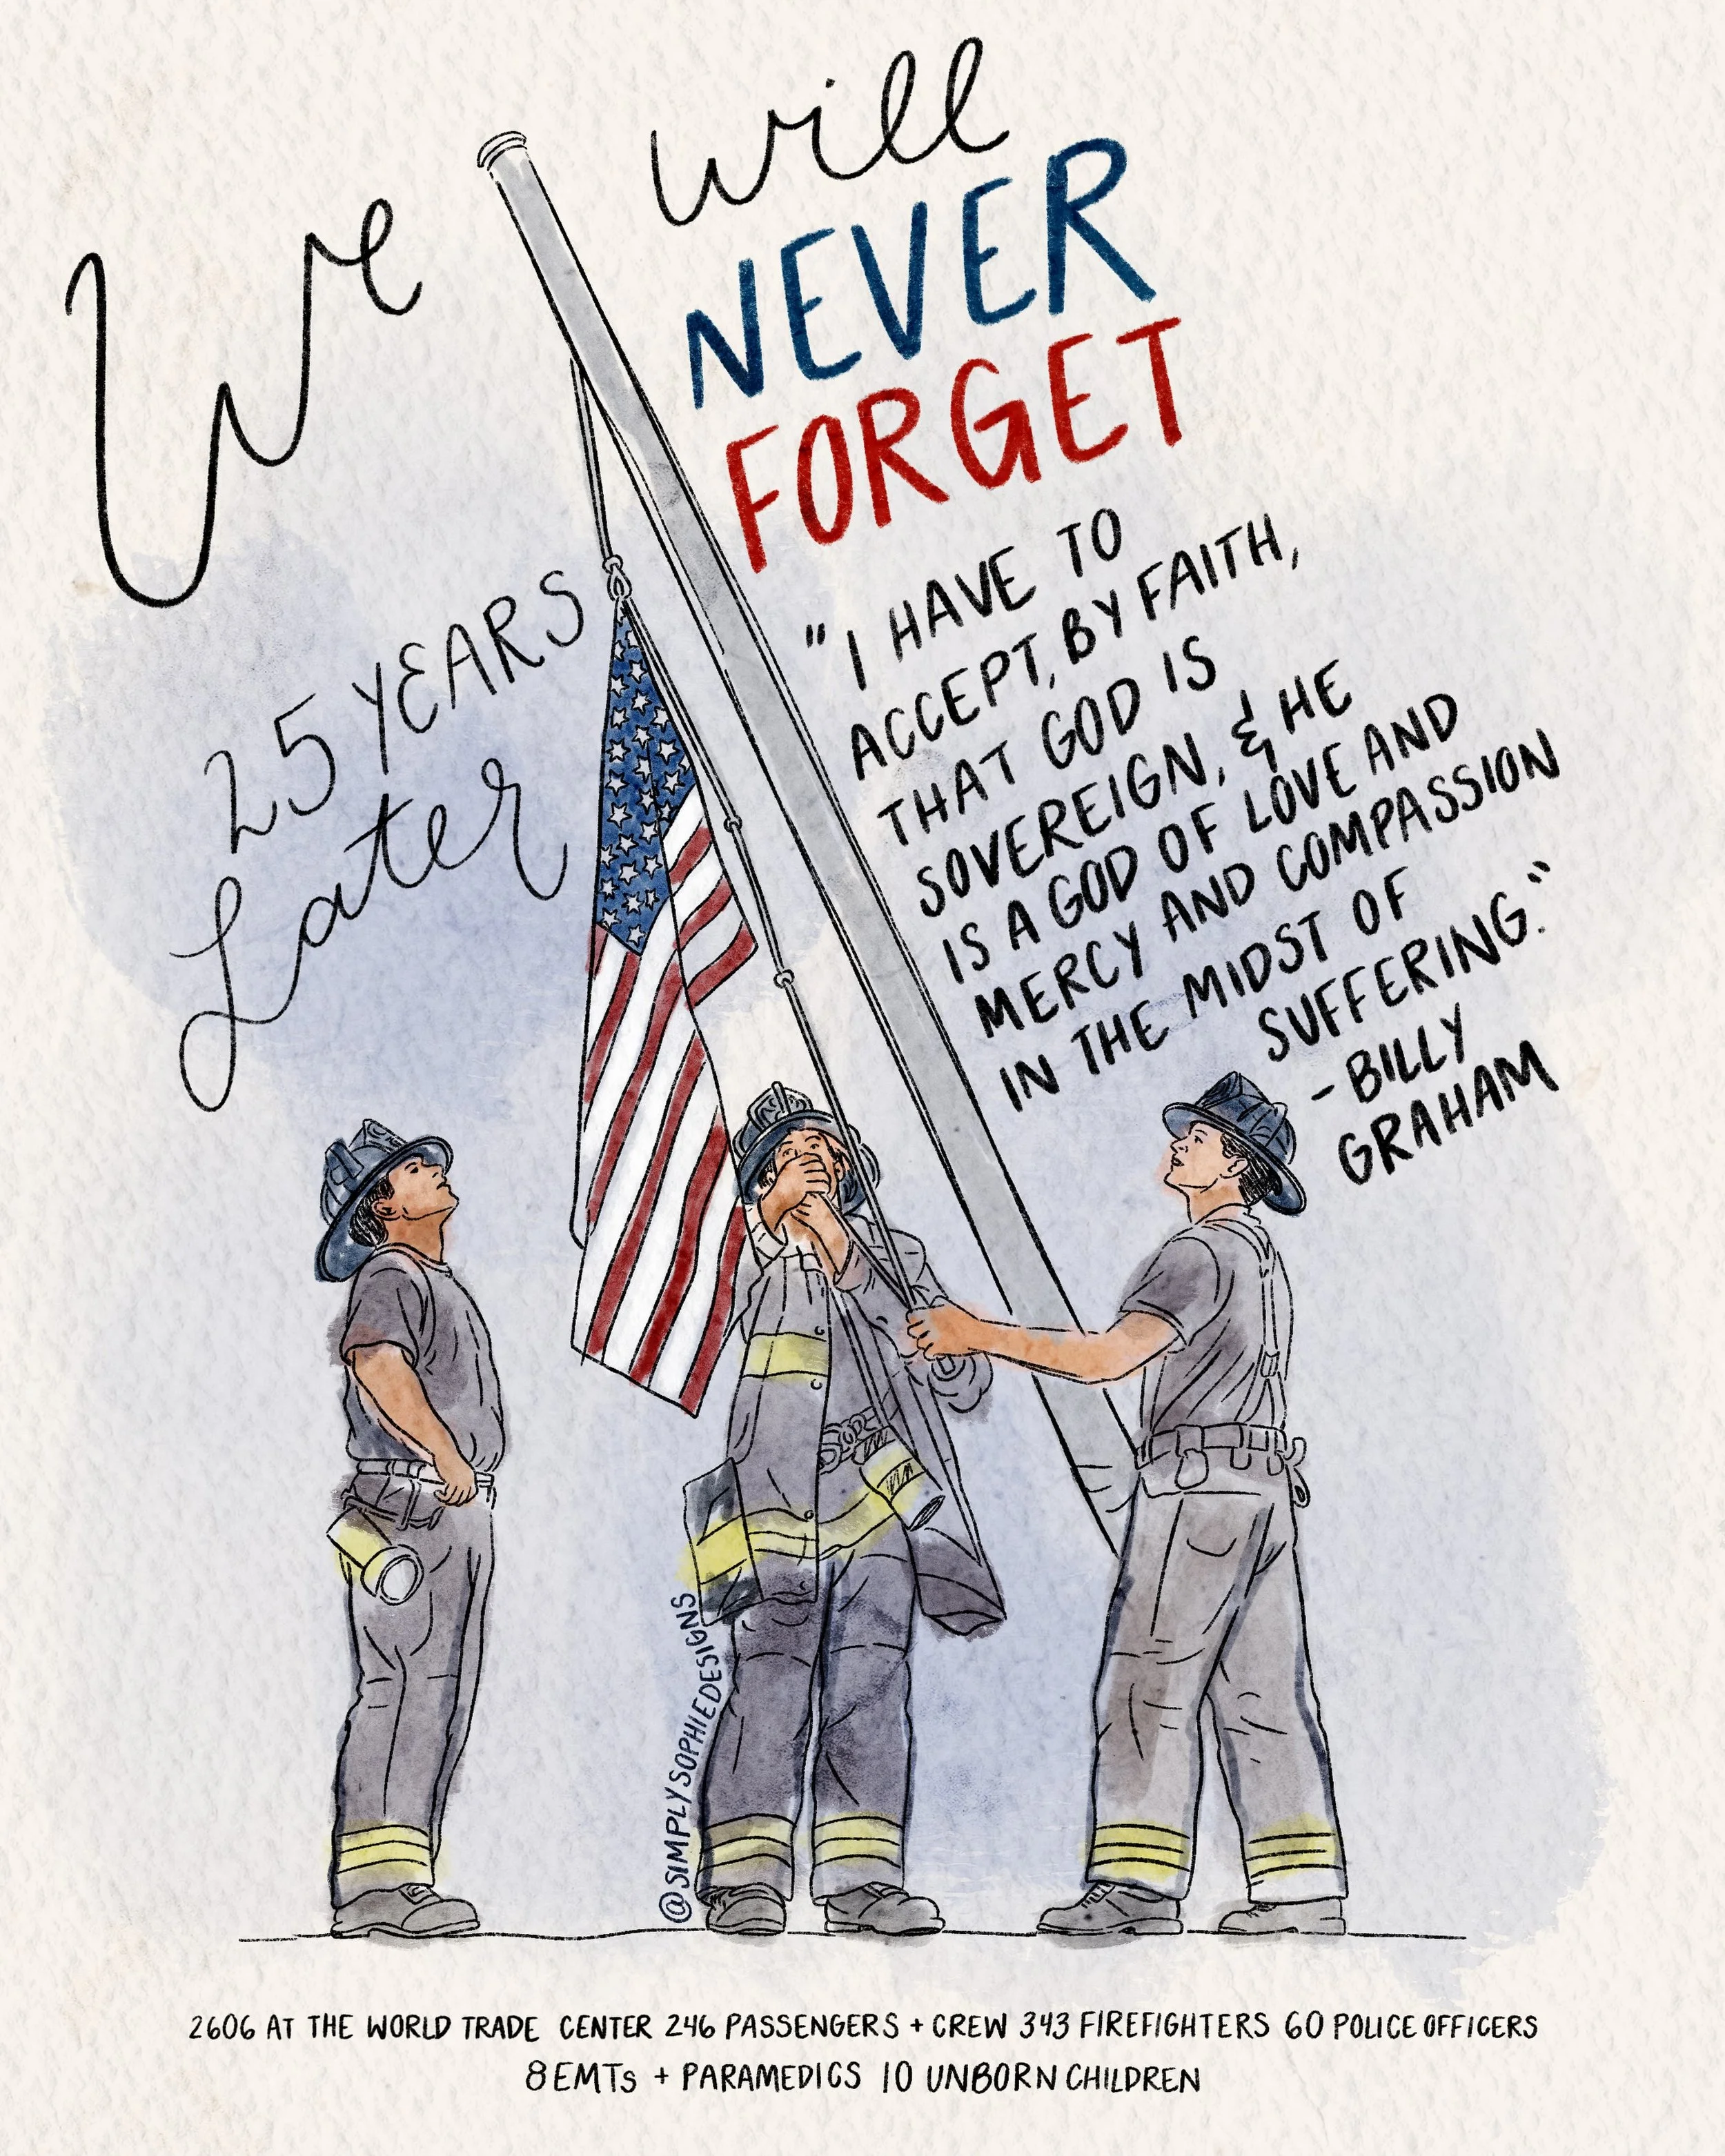 We will
NEVER
FORGET
25 YEARS
Later
"I HAVE TO
ACCEPT, BY FAITH,
THAT GOD IS
SOVEREIGN, & HE
IS A GOD OF LOVE AND
MERCY AND COMPASSION
IN THE MIDST OF
SUFFERING."
- BILLY
GRAHAM
@SIMPLYSOPHIEDESIGNS
2606 AT THE WORLD TRADE CENTER 246 PASSENGERS + CREW 343 FIREFIGHTERS 60 POLICE OFFICERS
8 EMTs + PARAMEDICS 10 UNBORN CHILDREN